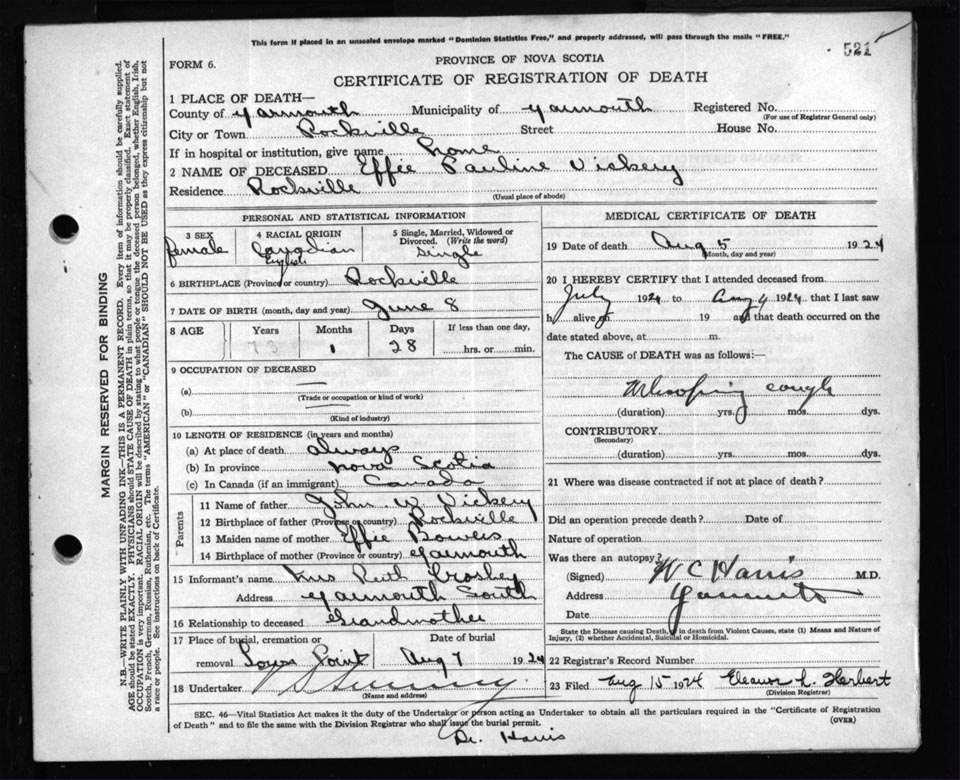 This form if placed in an unsealed envelope marked "Dominion Statistics Free," and properly addressed, will pass through the mails "FREE."
521
FORM 6.
PROVINCE OF NOVA SCOTIA
CERTIFICATE OF REGISTRATION OF DEATH
MARGIN RESERVED FOR BINDING
N.B.—WRITE PLAINLY WITH UNFADING INK—THIS IS A PERMANENT RECORD. Every item of information should be carefully supplied.
AGE should be stated EXACTLY. PHYSICIANS should STATE CAUSE OF DEATH in plain terms, so that it may be properly classified. Exact statement of
OCCUPATION is very important. RACIAL ORIGIN will be described by stating to what people or tongue the deceased person belonged, whether English, Irish,
Scotch, French, German, Russian, Ruthenian, etc. The terms "AMERICAN" or "CANADIAN" SHOULD NOT BE USED as they express citizenship but not
a race or people. See instructions on back of Certificate.
1 PLACE OF DEATH—
County of Yarmouth Municipality of Yarmouth Registered No.
(For use of Registrar General only)
City or Town Rockville Street House No.
If in hospital or institution, give name home
2 NAME OF DECEASED Effie Pauline Vickery
Residence Rockville
(Usual place of abode)
PERSONAL AND STATISTICAL INFORMATION
3 SEX
female
4 RACIAL ORIGIN
Canadian
English
5 Single, Married, Widowed or
Divorced. (Write the word)
Single
6 BIRTHPLACE (Province or country) Rockville
7 DATE OF BIRTH (month, day and year) June 8
8 AGE Years Months Days If less than one day,
1 28 hrs. or min.
9 OCCUPATION OF DECEASED
(a)
(Trade or occupation or kind of work)
(b)
(Kind of industry)
10 LENGTH OF RESIDENCE (in years and months)
(a) At place of death always
(b) In province Nova Scotia
(c) In Canada (if an immigrant) Canada
Parents
11 Name of father John W Vickery
12 Birthplace of father (Province or country) Rockville
13 Maiden name of mother Effie Bowers
14 Birthplace of mother (Province or country) Yarmouth
15 Informant's name Mrs Ruth Crosby
Address Yarmouth South
16 Relationship to deceased Grandmother
17 Place of burial, cremation or
removal
Date of burial
Aug 7 1924
18 Undertaker
(Name and address)
MEDICAL CERTIFICATE OF DEATH
19 Date of death Aug 5 1924
(Month, day and year)
20 I HEREBY CERTIFY that I attended deceased from
July 1924 to Aug 4 1924 that I last saw
h alive on 19 and that death occurred on the
date stated above, at m.
The CAUSE of DEATH was as follows:—
Whooping cough
(duration) yrs. mos. dys.
CONTRIBUTORY
(Secondary)
(duration) yrs. mos. dys.
21 Where was disease contracted if not at place of death?
Did an operation precede death? Date of
Nature of operation
Was there an autopsy?
(Signed) W C Harris M.D.
Address Yarmouth
Date
State the Disease causing Death, or in death from Violent Causes, state (1) Means and Nature of
Injury, (2) whether Accidental, Suicidal or Homicidal.
22 Registrar's Record Number
23 Filed Aug 15 1924 Eleanor L. Herbert
(Division Registrar)
SEC. 46—Vital Statistics Act makes it the duty of the Undertaker or person acting as Undertaker to obtain all the particulars required in the "Certificate of Registration
of Death" and to file the same with the Division Registrar who shall issue the burial permit.
(OVER)
Dr. Harris